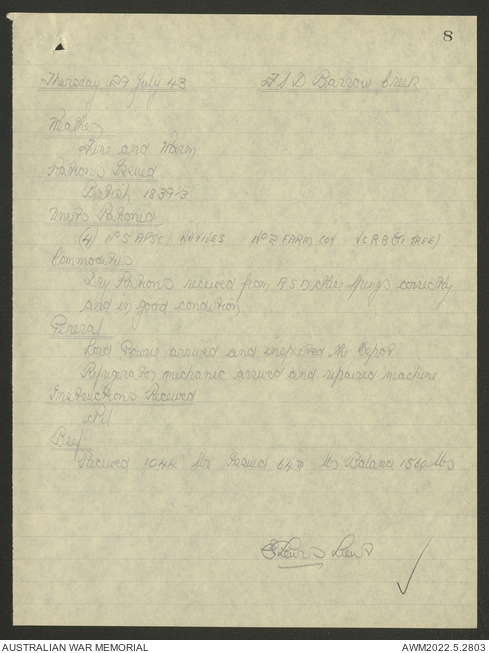 8
Thursday 29 July 43 FSD Barrow Creek
Weather
Fine and Warm
Rations Issued
British 1839⅓
Units Rationed
(4) No 5 APSC NATIVES No 2 FARM COY VCRB (TI TREE)
Commodities
Dry Rations received from RSD Alice Springs correctly
and in good condition
General
Lord Gowrie arrived and inspected the Depot.
Refrigerator mechanic arrived and repaired machine
Instructions Received
Nil
Beef
Received 1044 lbs Issued lbs Balance 1560 lbs
Lieut
AUSTRALIAN WAR MEMORIAL AWM2022.5.2803